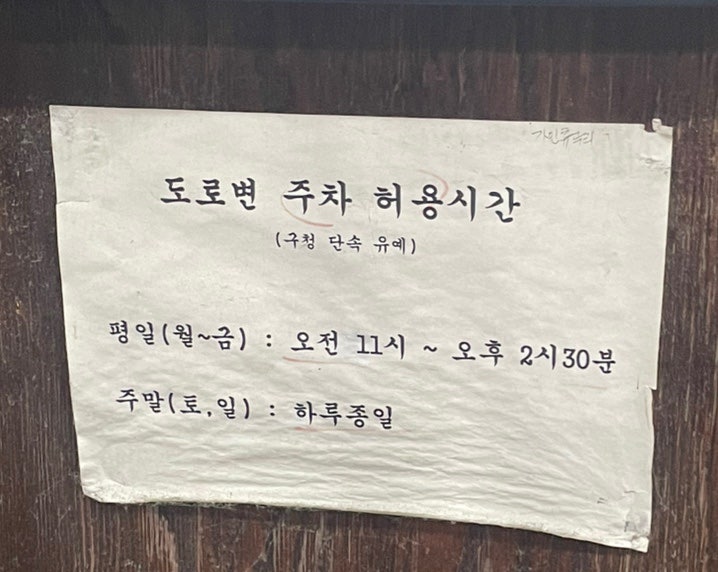 도로변 주차 허용시간
(구청 단속 유예)
평일(월~금) : 오전 11시 ~ 오후 2시30분
주말(토,일) : 하루종일